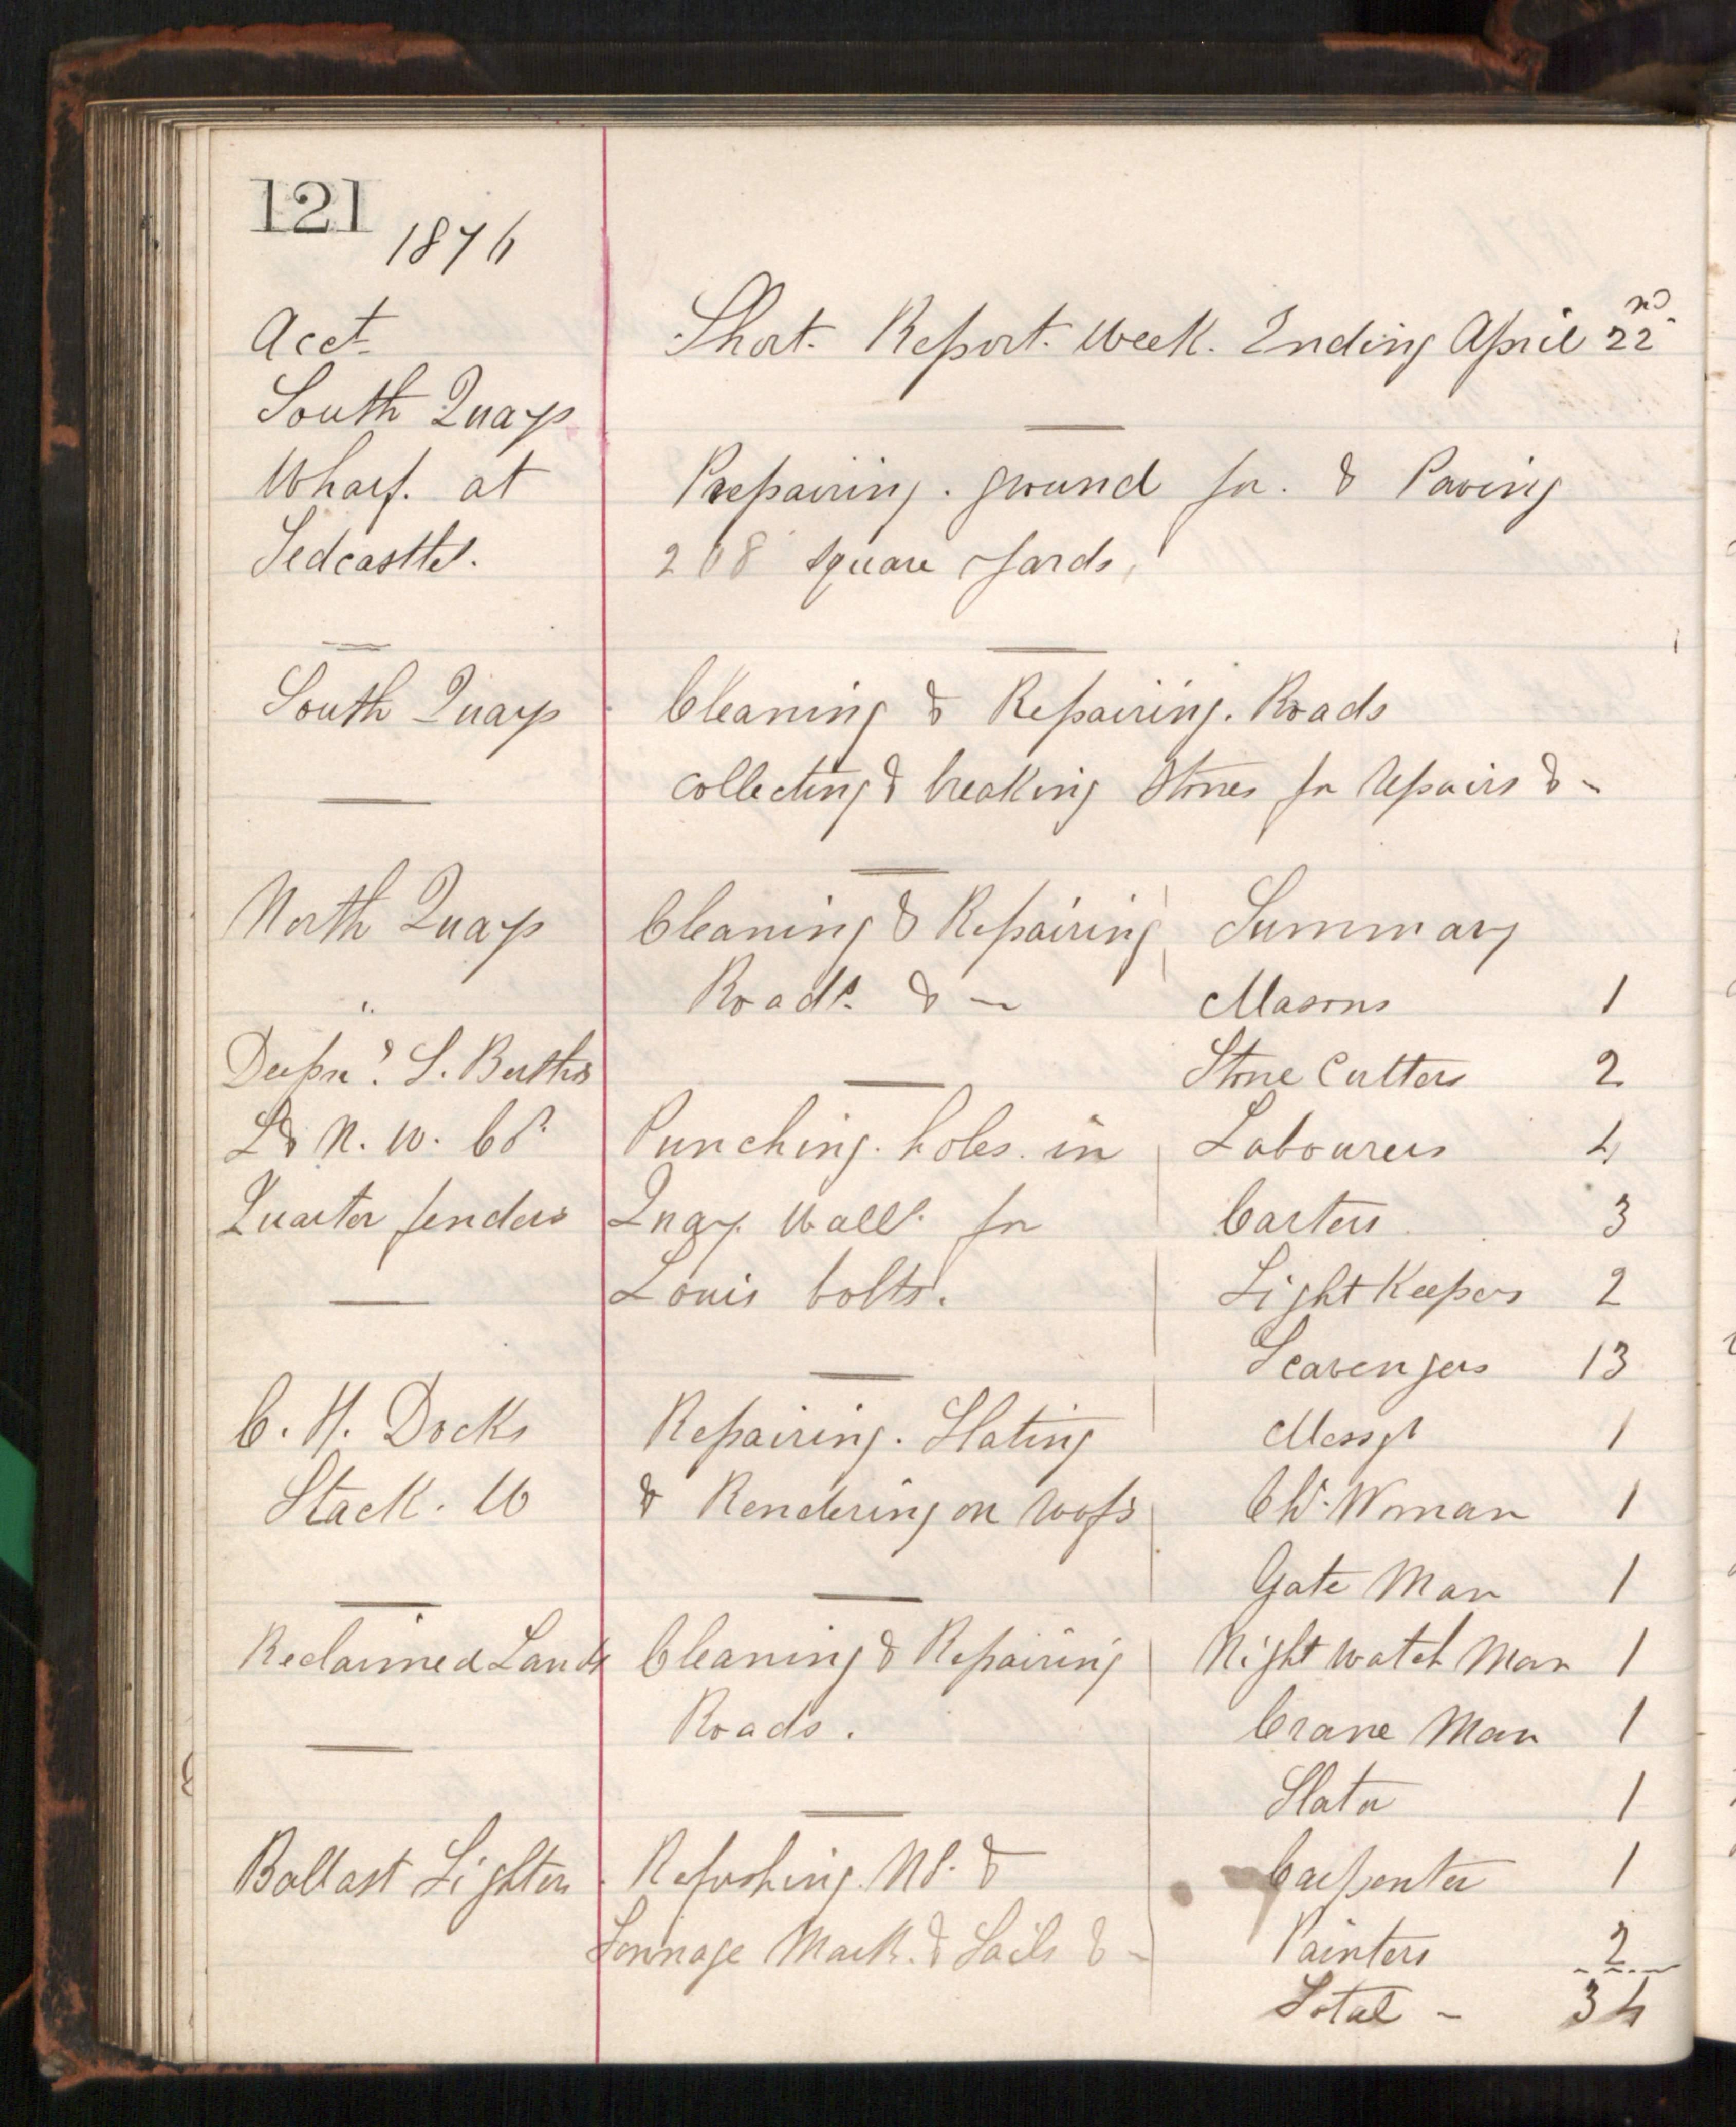 121
1876
Acct. Short. Report. Week. Ending April 22nd.
South Quays
Wharf. at Prepairing. ground for. & Paving
Tedcastles. 208 square yards,
South Quays Cleaning & Repairing. Roads
collecting & breaking Stones for Repairs & -
North Quays Cleaning & Repairing Summary
" Roads. & - Masons 1
Deepn. S. Berths Stone Cutters 2
L & N. W. Co. Punching. holes. in Labourers 4
Quarter fenders Quay Wall. for Carters 3
Louis bolts. Light Keepers 2
Scavengers 13
C. H. Docks Repairing. Slating Messgr 1
Stack. 10 & Rendering on roofs Ch. Woman 1
Gate Man 1
Reclaimed Lands Cleaning & Repairing Night Watch Man 1
Roads. Crane Man 1
Slater 1
Ballast Lighters Refreshing No. & Carpenter 1
Tonnage Mark. & Sails & - Painters 2
Total - 34